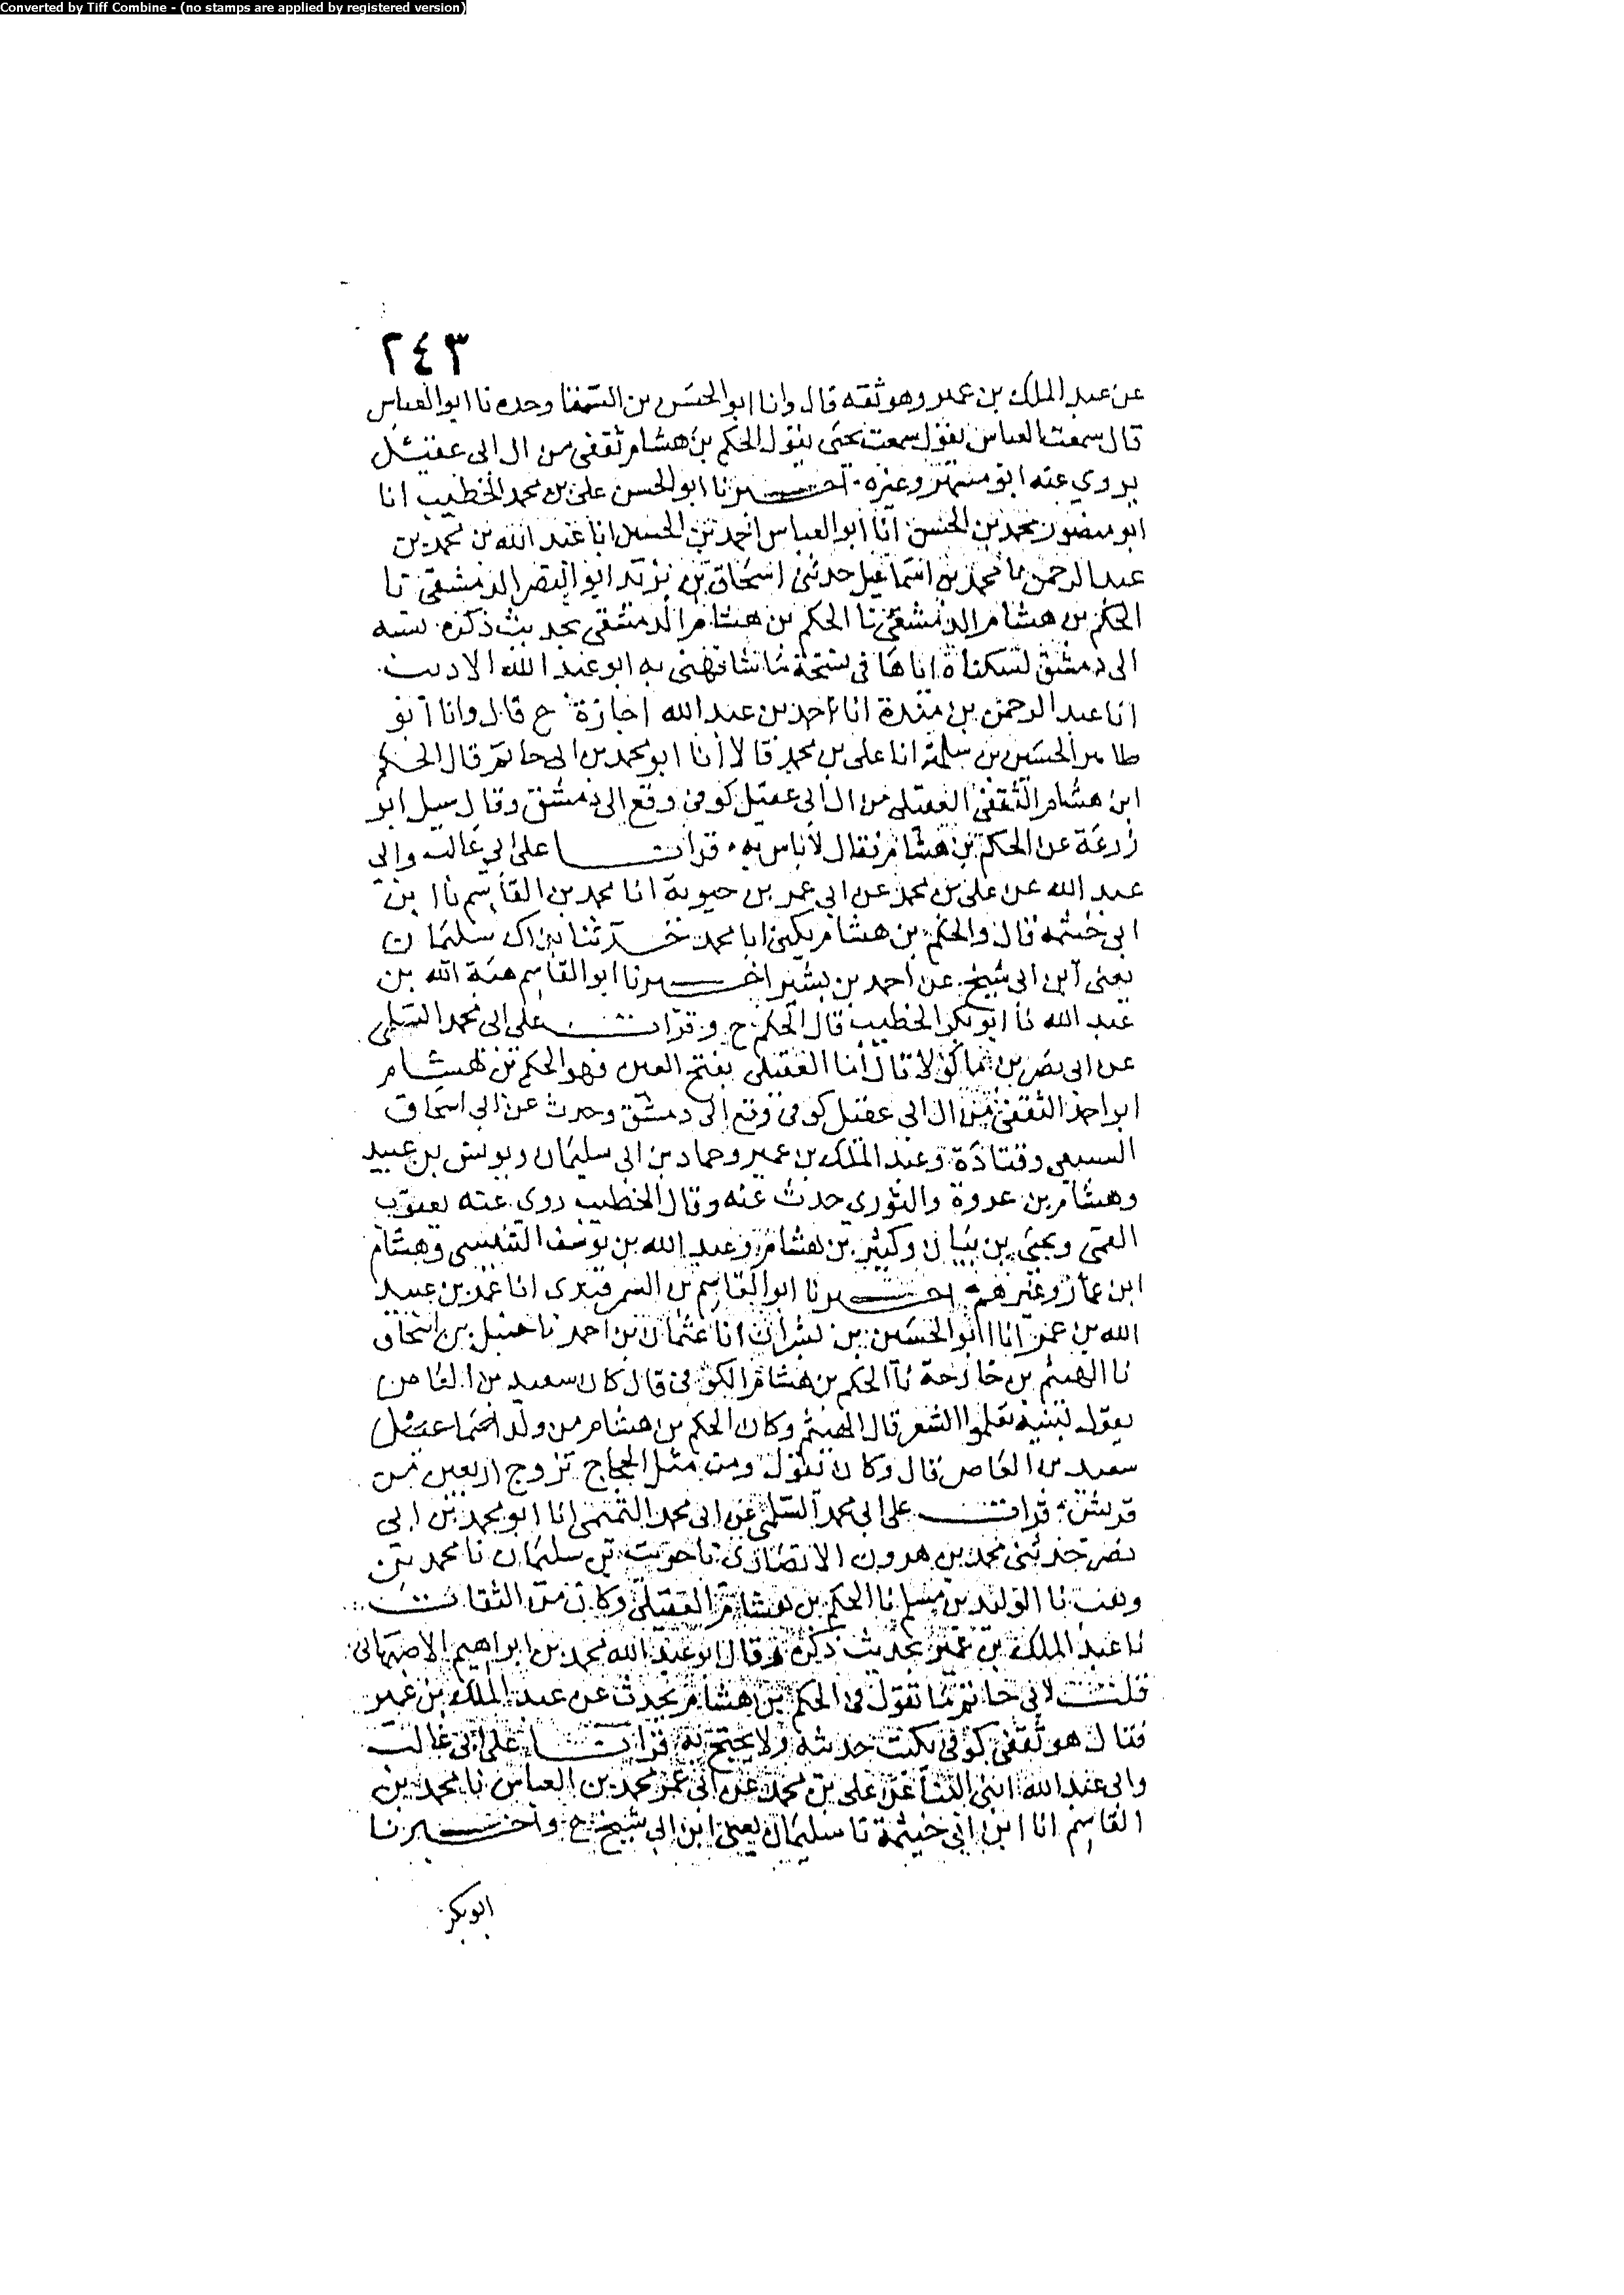 Converted by Tiff Combine - (no stamps are applied by registered version)
٢٤٣
عن عبد الملك بن عمير وهو ثقه قال وانا ابو الحسن بن السقا وحده نا ابو العباس
قال سمعت العباس يقول سمعت يحيى يقول الحكم بن هشام ثقفي من ال ابى عقيل
يروي عنه ابو مسهر وغيره اخبرنا ابو الحسن على بن محمد الخطيب انا
ابو منصور محمد بن الحسن انا ابو العباس احمد بن الحسين انا عبد الله بن محمد بن
عبد الرحمن نا محمد بن اسماعيل حدثنى اسحاق بن يزيد ابو النضر الدمشقى نا
الحكم بن هشام الدمشقى نا الحكم بن هشام الدمشقى بحديث ذكره نسبه
الى دمشق لسكناه اياها فى نسخة ما شافهنى به ابو عبد الله الاديب
انا عبد الرحمن بن مندة انا احمد بن عبد الله اجازة ح قال وانا ابو
طاهر الحسين بن سلمة انا على بن محمد قالا انا ابو محمد بن ابى حاتم قال الحكم
ابن هشام الثقفى العقيلى من ال ابى عقيل كوفى وقع الى دمشق وقال سيل ابو
زرعة عن الحكم بن هشام فقال لا باس به قرات على ابي غالب وابي
عبد الله عن على بن محمد عن ابى عمر بن حيوية انا محمد بن القاسم نا ابن
ابى خيثمه قال والحكم بن هشام يكنى ابا محمد حدثنا بذاك سليمان
يعنى ابن ابى شيخ عن احمد بن بشير اخبرنا ابو القاسم هبة الله بن
عبد الله نا ابو بكر الخطيب قال الحكم ح وقرات على ابى محمد السلمى
عن ابى نصر بن ماكولا قال اما العقيلى بفتح العين فهو الحكم بن هشام
ابو احمد الثقفى من ال ابى عقيل كوفى وقع الى دمشق وحدث عن ابى اسحاق
السبيعى وقتادة وعبد الملك بن عمير وحماد بن ابى سليمان ويونس بن عبيد
وهشام بن عروة والثوري حدث عنه وقال الخطيب روى عنه يعقوب
القمى ويحيى بن يمان وكثير بن هشام وعبد الله بن يوسف التنيسى وهشام
ابن عمار وغيرهم اخبرنا ابو القاسم بن السمرقندى انا عمر بن عبيد
الله بن عمر انا ابو الحسين بن بشران انا عثمان بن احمد نا حنبل بن اسحاق
نا الهيثم بن خارجة نا الحكم بن هشام الكوفى قال كان سعيد بن العاص
يقول لبنيه تعلموا الشعر قال الهيثم وكان الحكم بن هشام من ولد اسماعيل
سعيد بن العاص قال وكان يقول ومن مثل الحجاج تزوج اربعين من
قريش قرات على ابى محمد السلمى عن ابى محمد التميمى انا ابو محمد بن ابى
نصر حدثنى محمد بن هرون الانصارى نا حويت بن سليمان نا محمد بن
وهب نا الوليد بن مسلم نا الحكم بن هشام العقيلى وكان من الثقات
نا عبد الملك بن عمير بحديث ذكره وقال ابو عبد الله محمد بن ابراهيم الاصبهانى
قلت لابى حاتم ما تقول فى الحكم بن هشام يحدث عن عبد الملك بن عمير
فقال هو ثقفى كوفى يكتب حديثه ولا يحتج به قرات على ابى غالب
وابى عبد الله ابنى البنا عن على بن محمد عن ابى عمر محمد بن العباس نا محمد بن
القاسم انا ابن ابى خيثمة نا سليمان يعنى ابن ابى شيخ ح واخبرنا
ابو بكر